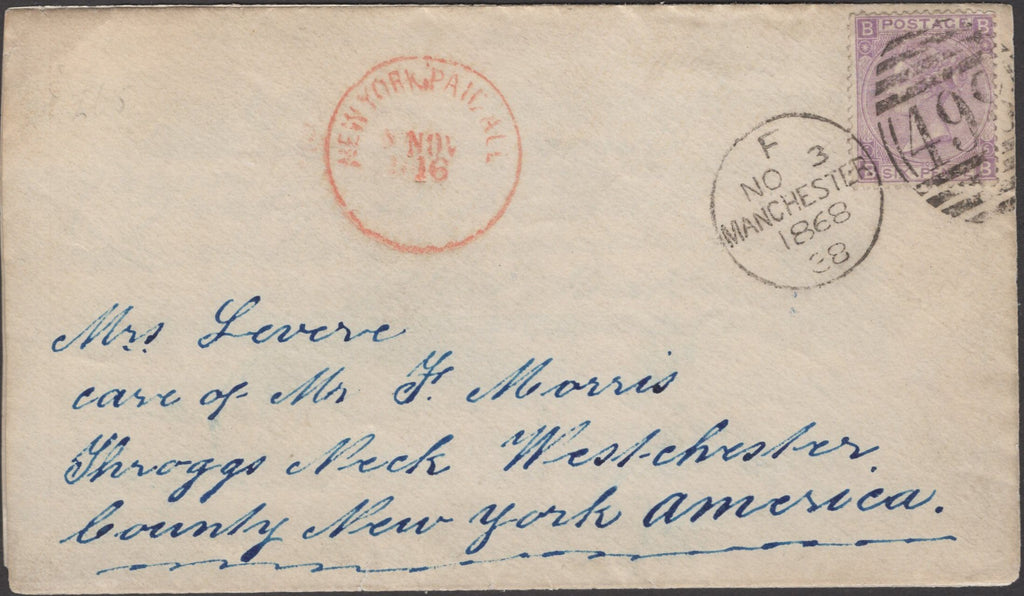 B POSTAGE B
NEW YORK PAID ALL
NOV
16
498
F
NO 3
MANCHESTER
1868
38
B SIX P B
Mrs Levere
care of Mr F. Morris
Throggs Neck Westchester
County New York America.